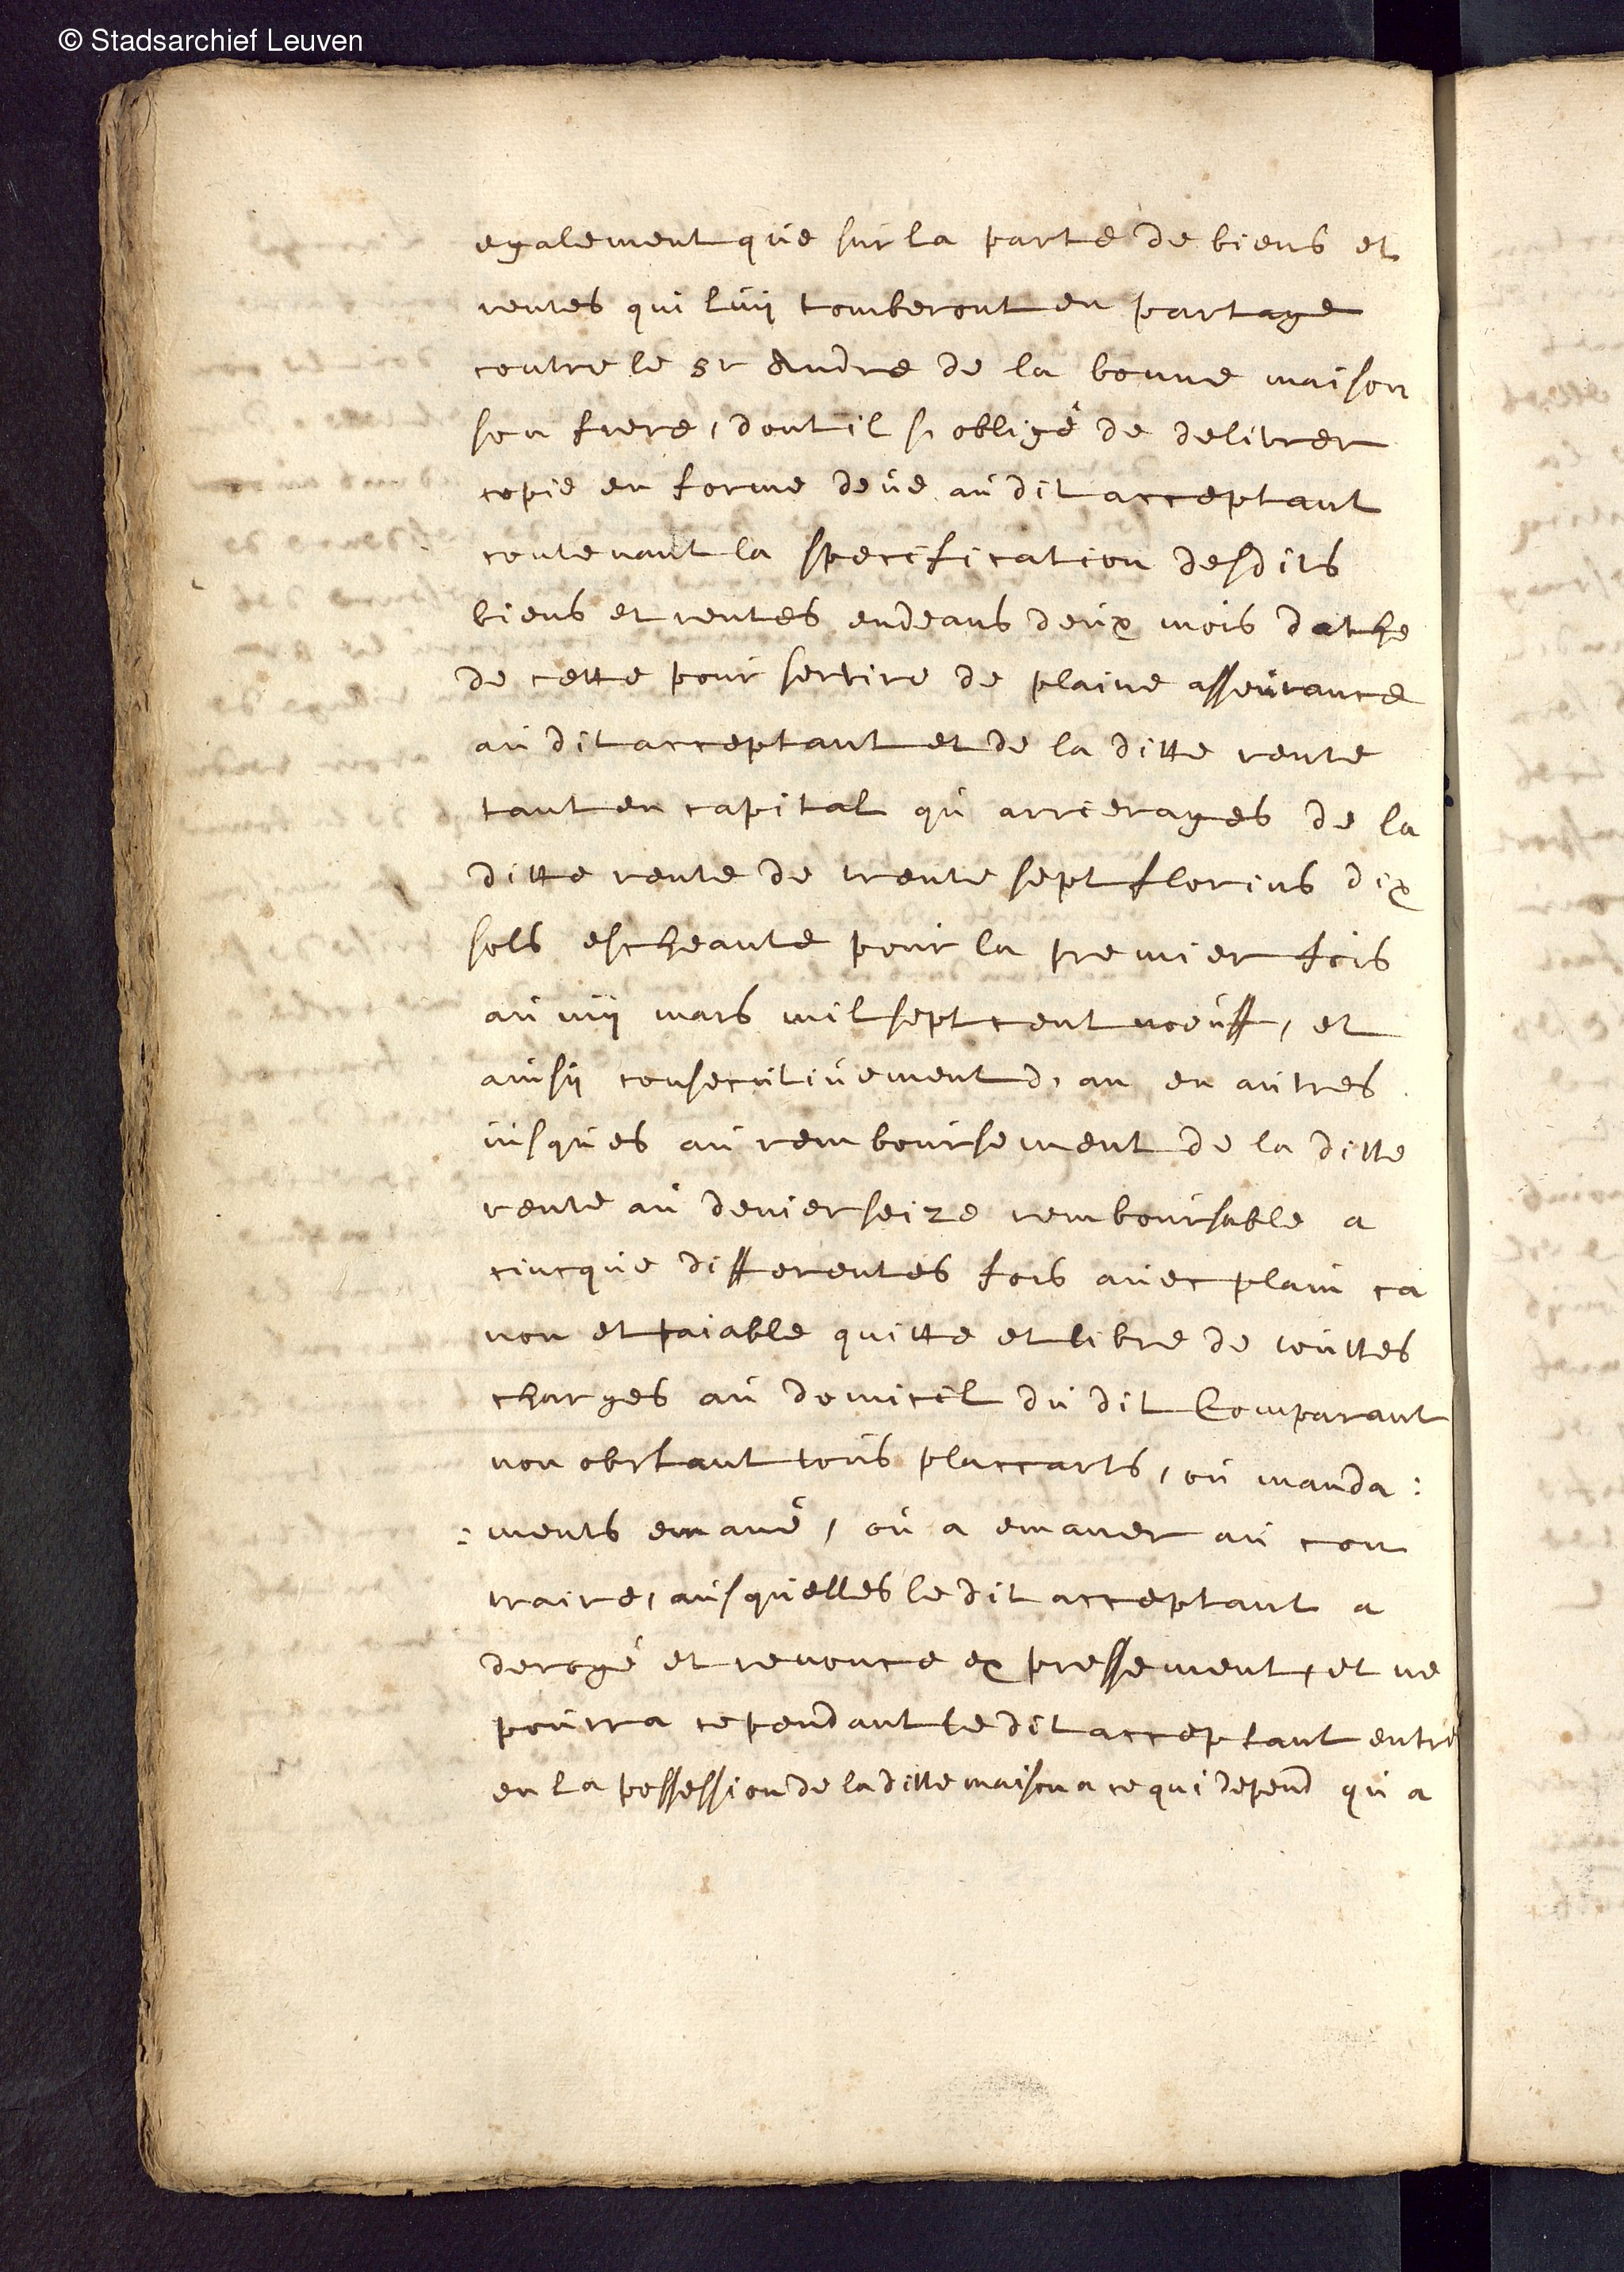 © Stadsarchief Leuven
egalement que sur la parte de biens et
rentes qui luij tomberont en partage
contre le sr Andre de la bonne maison
son frere, dont il s'obligé de delivrer
copie en forme deue au dit acceptant
contenant la specification desdits
biens et rentes endeans deux mois dathe
de cette pour servire de plaine asseurance
au dit acceptant et de la ditte rente
tant en capital qu arrierages de la
ditte rente de trente sept florins dix
sols escheante pour la premier fois
au mars mil sept cent noeuff, et
ainsij consecutivement d'an en autres
iusques au remboursement de la ditte
rente au denier seize remboursable a
cincque differentes fois avec plain ca
non et paiable quitte et libre de touttes
charges au domicil du dit Comparant
non obstant tous placcarts, ou manda:
:ments emané, ou a emaner au con
traire, ausquelles le dit acceptant a
derogé et renonce expressement, et ne
pourra cependant le dit acceptant entre
en la possession de la ditte maison a ce qui depend qu a